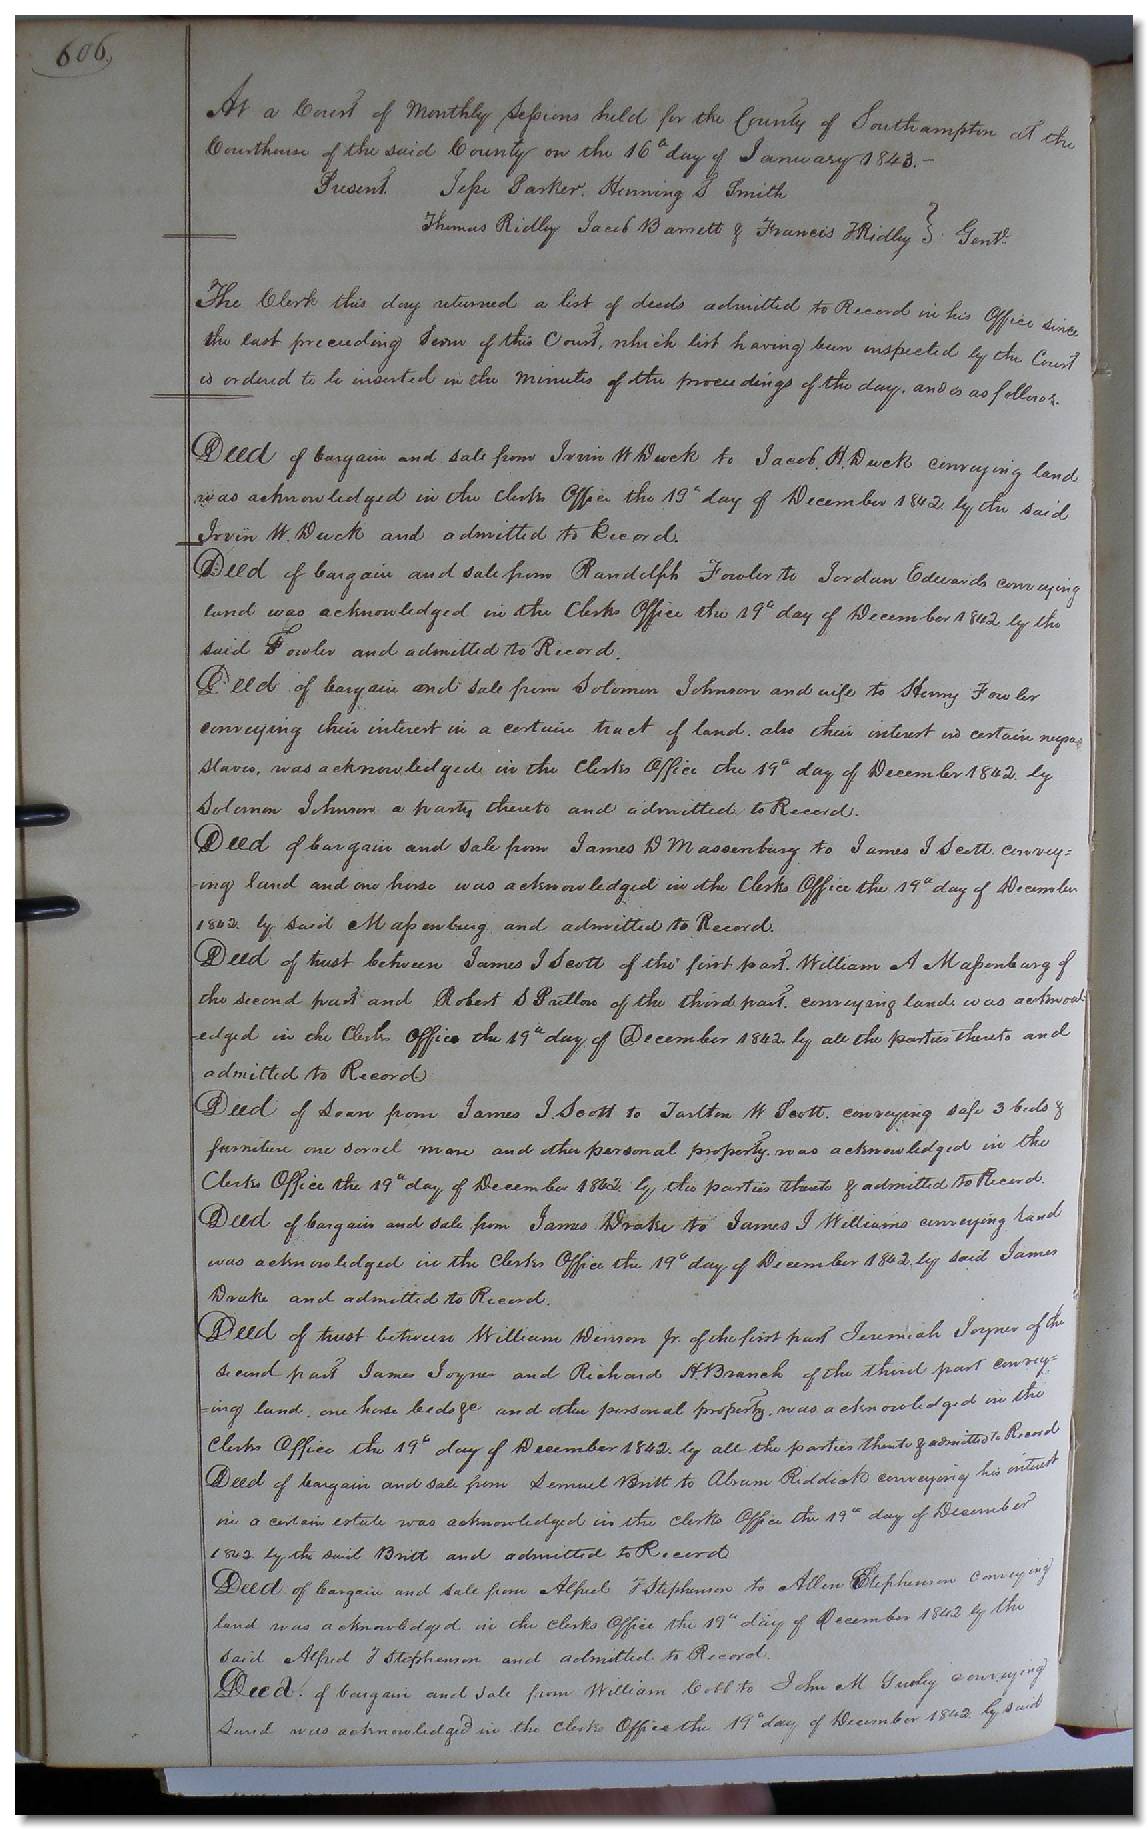 606.
At a Court of Monthly Sessions held for the County of Southampton at the
Courthouse of the said County on the 16th day of January 1843.-
Present. Jesse Parker. Henning T Smith
Thomas Ridley Jacob Barrett & Francis T Ridley } Gent.
The Clerk this day returned a list of deeds admitted to Record in his Office since
the last preceeding Term of this Court, which list having been inspected by the Court
is ordered to be inserted in the Minutes of the proceedings of the day. and is as follows.
Deed of bargain and sale from Irvin W. Duck to Jacob, H. Duck conveying land
was acknowledged in the Clerks Office the 19th day of December 1842. by the said
Irvin W. Duck and admitted to Record.
Deed of bargain and sale from Randolph Fowler to Jordan Edwards conveying
land was acknowledged in the Clerks Office the 19th day of December 1842 by the
said Fowler and admitted to Record.
Deed of bargain and sale from Solomon Johnson and wife to Henry Fowler
conveying their interest in a certain tract of land. also their interest in certain negro
slaves, was acknowledged in the Clerks Office the 19th day of December 1842. by
Solomon Johnson a party thereto and admitted to Record.
Deed of bargain and sale from James D Massenburg to James J Scott. convey=
-ing land and one horse was acknowledged in the Clerks Office the 19th day of December
1842. by said Massenburg and admitted to Record.
Deed of trust between James J Scott of the first part. William A Massenburg of
the second part and Robert S Pretlow of the third part. conveying land. was acknowl
-edged in the Clerks Office the 19th day of December 1842. by all the parties thereto and
admitted to Record
Deed of Loan from James J. Scott to Tarlton W Scott. conveying safe 3 beds &
furniture one sorrel mare and other personal property. was acknowledged in the
Clerks Office the 19th day of December 1842. by the parties thereto & admitted to Record.
Deed of bargain and sale from James Drake to James J Williams conveying land
was acknowledged in the Clerks Office the 19th day of December 1842. by said James
Drake and admitted to Record.
Deed of trust between William Vinson Jr. of the first part Jeremiah Joyner of the
second part James Joyner and Richard H. Branch of the third part convey=
=ing land, one horse beds &c and other personal property. was acknowledged in the
Clerks Office the 19th day of December 1842. by all the parties thereto & admitted to Record
Deed of bargain and sale from Lemuel Britt to Abram Riddick conveying his interest
in a certain estate was acknowledged in the Clerks Office the 19th day of December
1842 by the said Britt and admitted to Record
Deed of bargain and sale from Alfred T Stephenson to Allen Stephenson conveying
land was acknowledged in the Clerks Office the 19th day of December 1842 by the
said Alfred T Stephenson and admitted to Record.
Deed. of bargain and sale from William Cobb to John M Gurley conveying
Land was acknowledged in the Clerks Office the 19th day of December 1842 by said